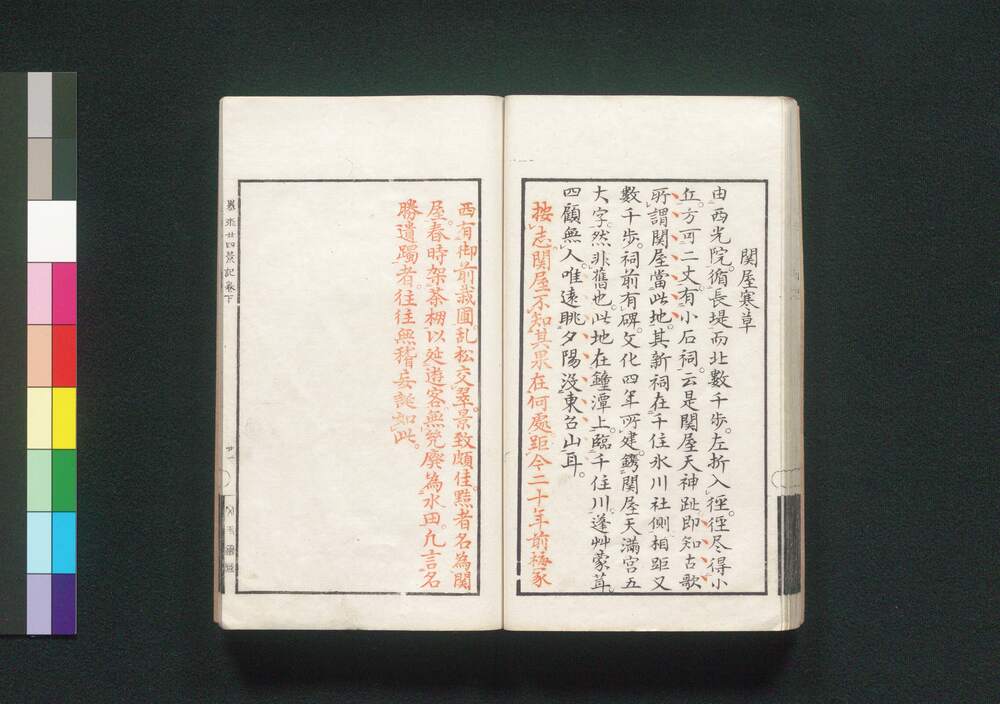 関屋寒草
由西光院。循長堤而北数千歩。左折入徑。徑尽得小
丘。方可二丈。有小石祠。云是関屋天神趾。即知古歌
所謂関屋當此地。其新祠在千住氷川社側相距又
數千歩。祠前有碑。文化四年所建。鐫関屋天満宮五
大字。然非舊也。此地在鐘潭上。臨千住川。蓬艸蒙茸。
四顧無人。唯遠眺夕陽没東台山耳。
按志関屋不知其果在何處。距今二十年前
西有御前栽圃乱松交翠。景致頗佳。黠者名為関
屋。春時架茶棚以延遊客無幾廃為水田。凡言名
勝遺躅者。往往無稽妄誕如此。
廿四景記卷下
廿一